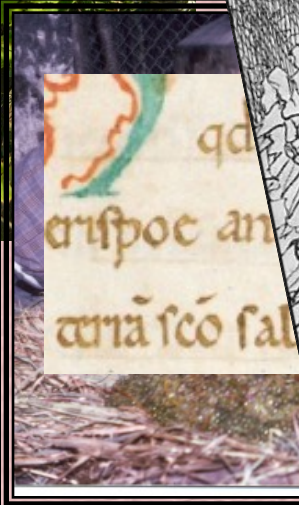 qd
erispoe an
terrā scō sal